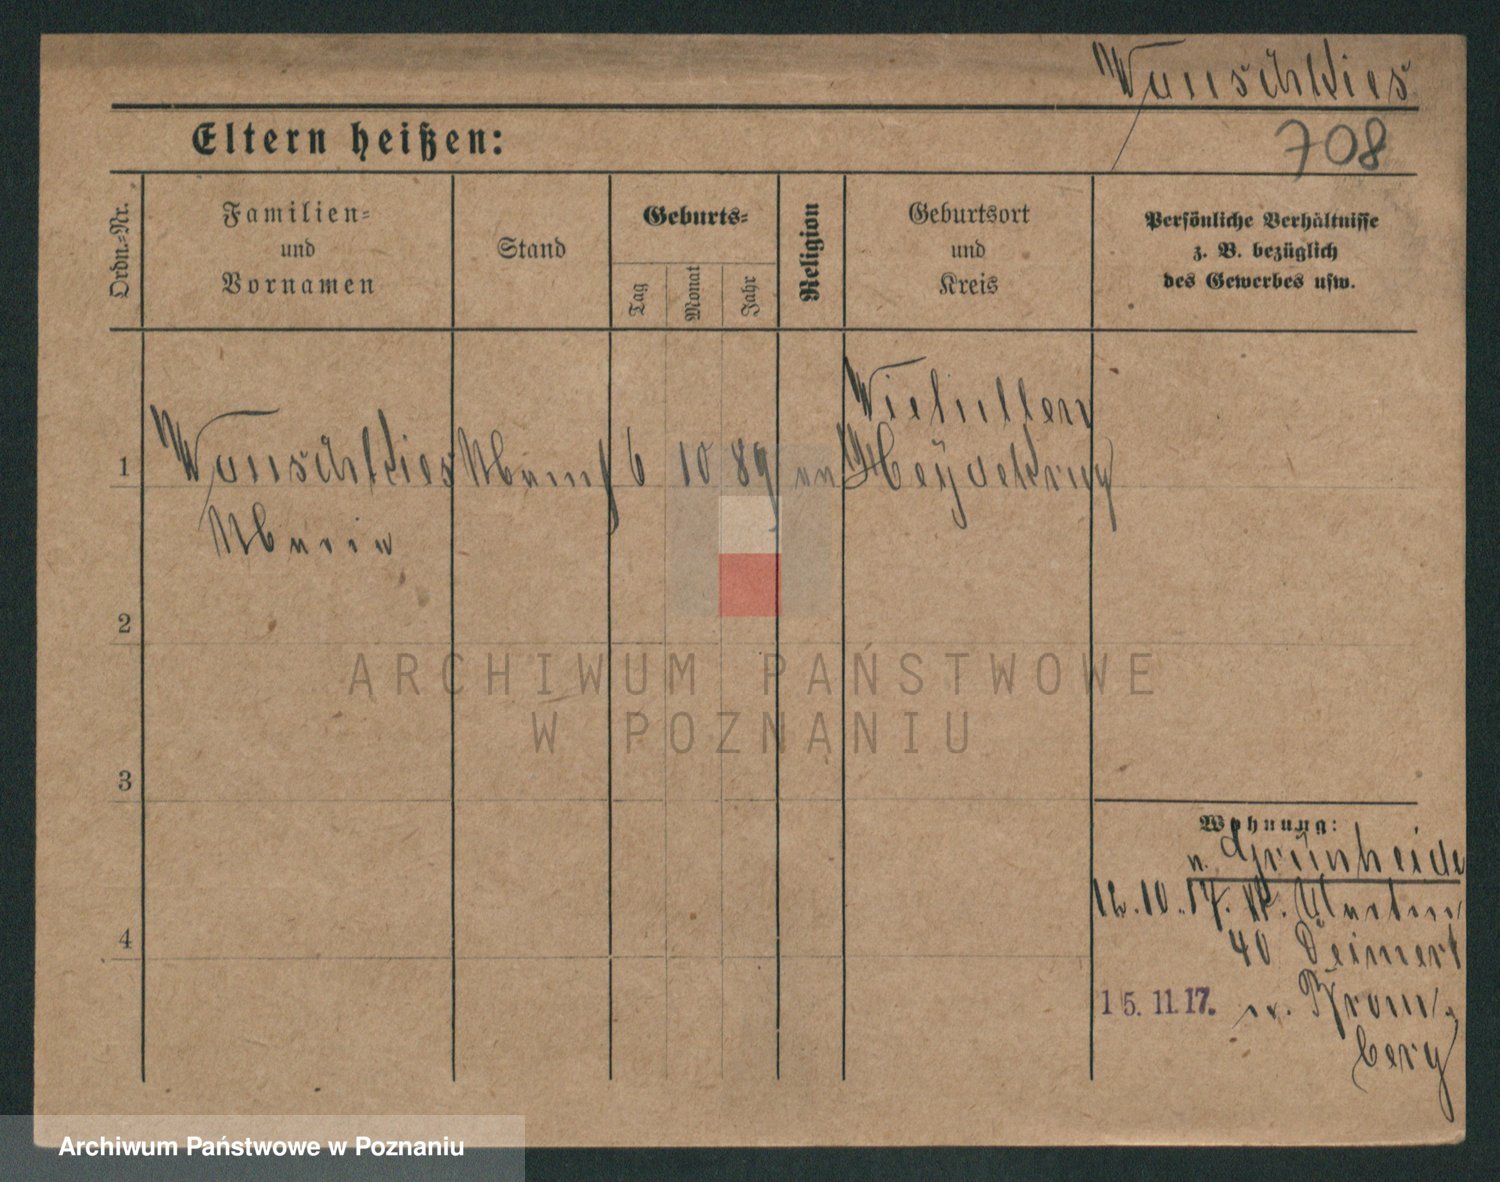 Wannschkies
708
Eltern heißen:
Ordn.=Nr.
Familien=
und
Vornamen
Stand
Geburts=
Tag
Monat
Jahr
Religion
Geburtsort
und
Kreis
Persönliche Verhältnisse
z. B. bezüglich
des Gewerbes usw.
1
6 10 89
Heydekrug
Maria
2
ARCHIWUM PAŃSTWOWE
W POZNANIU
3
Wohnung:
n. Grünheide
4
12.10.17. Martin
40
15.11.17. Brom-
berg
Archiwum Państwowe w Poznaniu